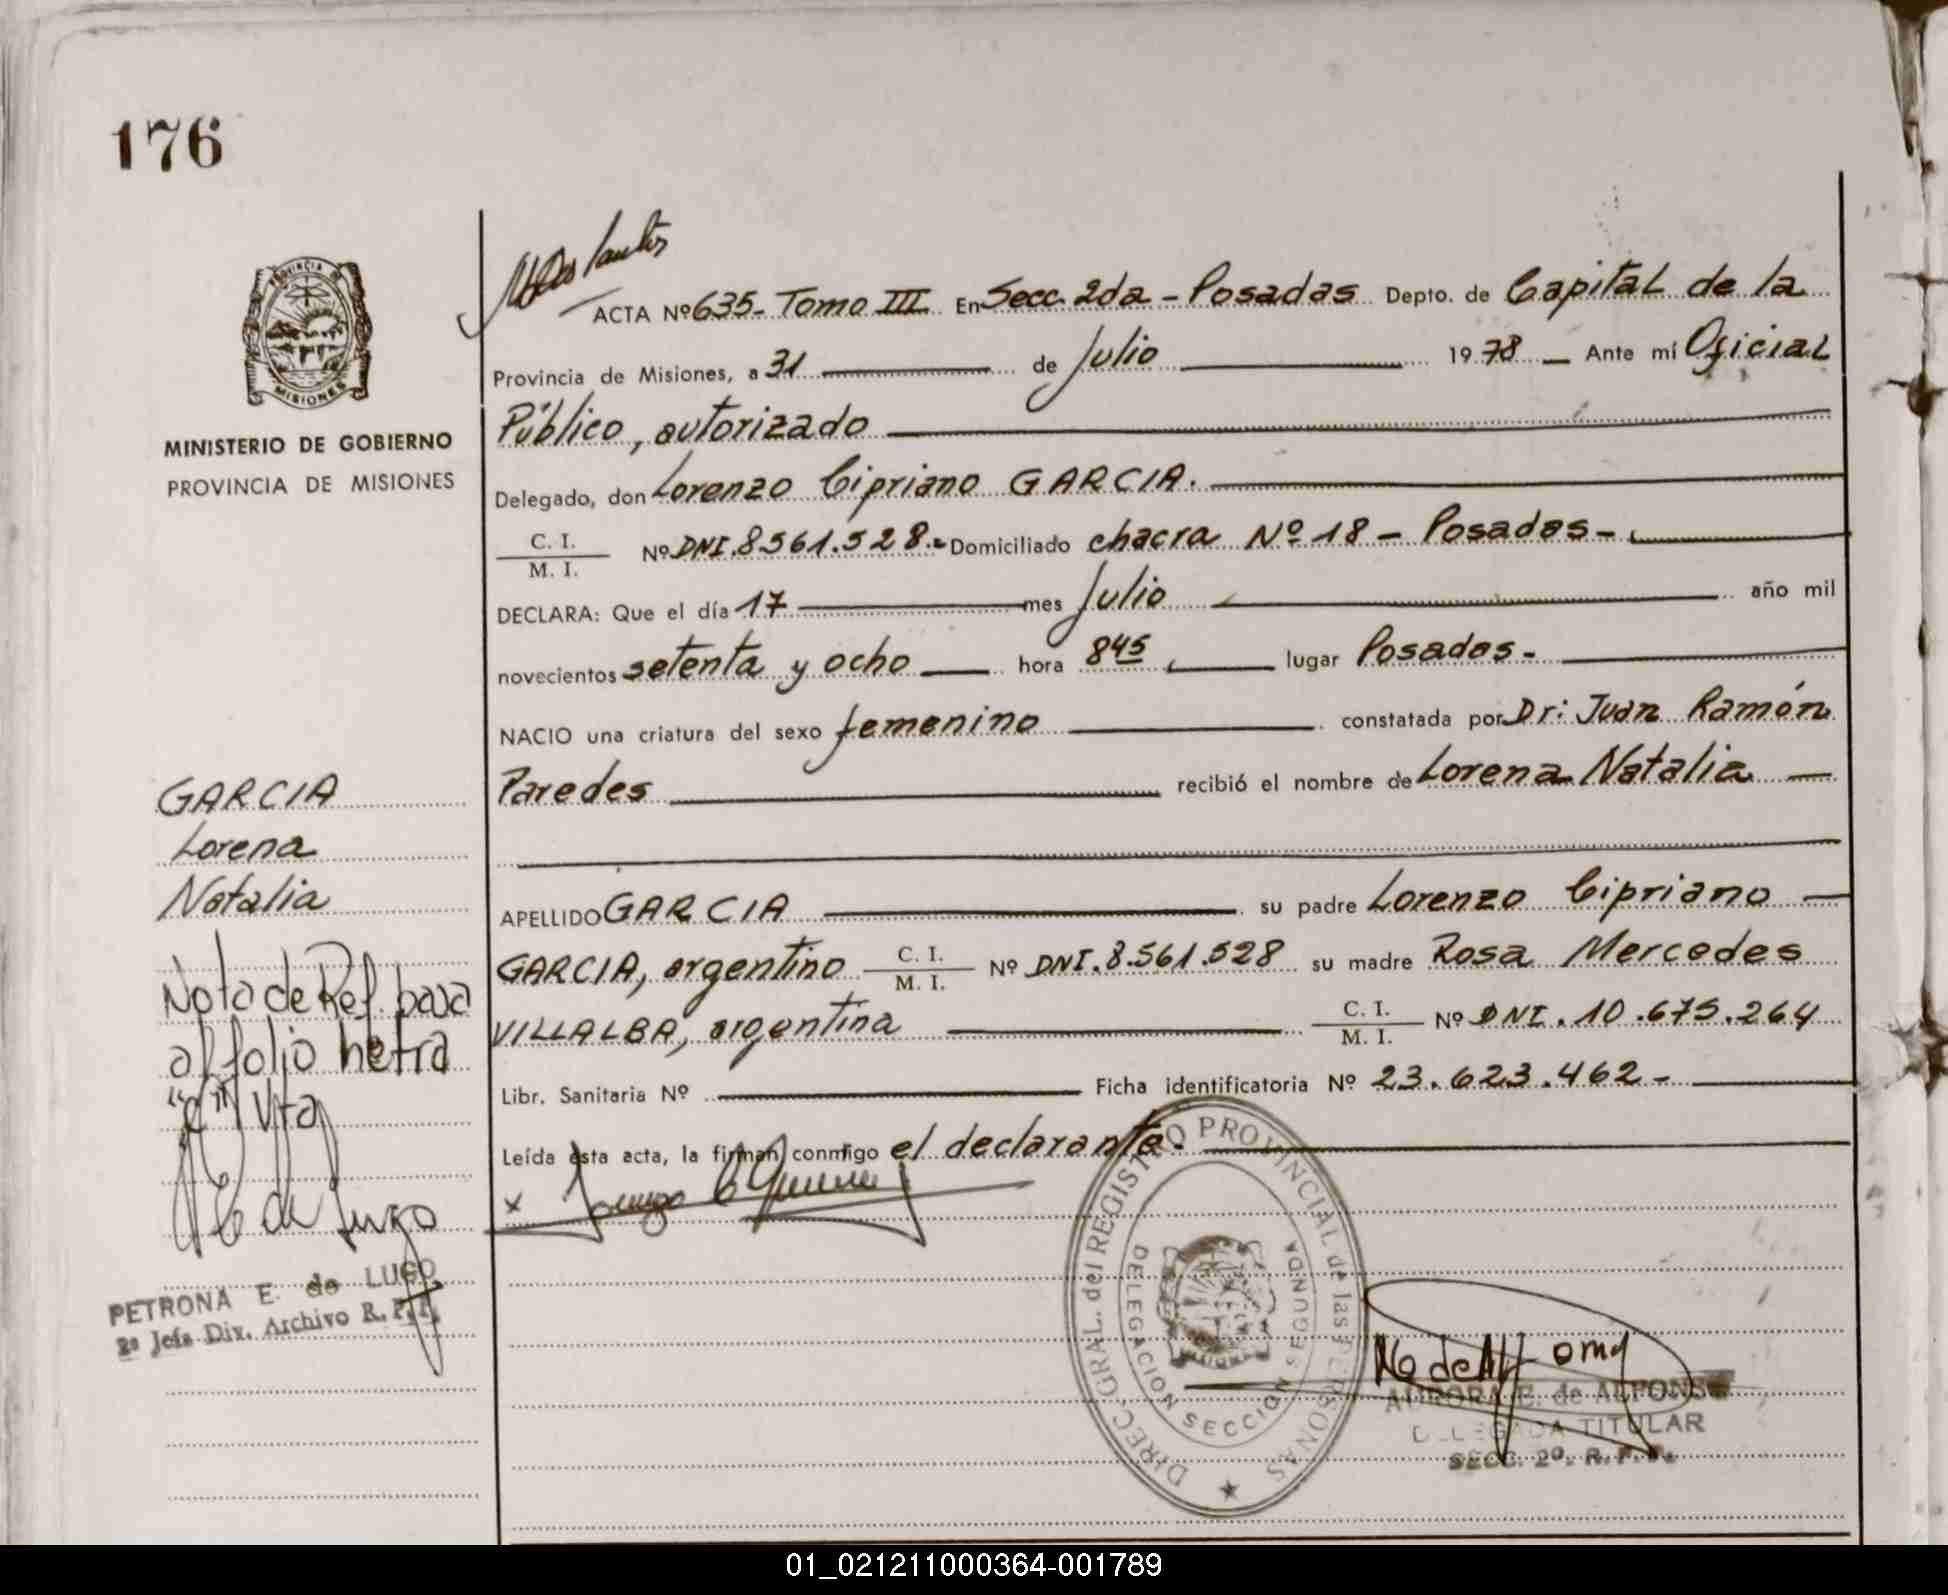 176
PROVINCIA DE
MISIONES
MINISTERIO DE GOBIERNO
PROVINCIA DE MISIONES
ACTA Nº 635- Tomo III En Secc. 2da - Posadas Depto. de Capital de la
Provincia de Misiones, a 31 de Julio 1978 Ante mi Oficial
Público, autorizado
Delegado, don Lorenzo Cipriano GARCIA.
C. I.
M. I. Nº DNI. 8.561.528.- Domiciliado chacra Nº 18 - Posadas-
DECLARA: Que el día 17 mes Julio año mil
novecientos setenta y ocho hora 8 45 lugar Posadas-
NACIO una criatura del sexo femenino constatada por Dr: Juan Ramón
Paredes recibió el nombre de Lorena Natalia
APELLIDO GARCIA su padre Lorenzo Cipriano
GARCIA, argentino C. I. M. I. Nº DNI. 8.561.528 su madre Rosa Mercedes
VILLALBA, argentina C. I. M. I. Nº DNI. 10.675.264
Libr. Sanitaria Nº Ficha identificatoria Nº 23.623.462-
Leída ésta acta, la firman conmigo el declarante.
x
GARCIA
Lorena
Natalia
Nota de Ref. pasa
al folio letra
"C" Vta
P E de Lugo
PETRONA E. de LUGO
2º Jefe Div. Archivo R. P. P.
DIREC. GRAL. del REGISTRO PROVINCIAL de las PERSONAS
DELEGACION SECCION SEGUNDA
AURORA B. de ALFONSO
DELEGADA TITULAR
SECC. 2º. R. P. P.
01_021211000364-001789